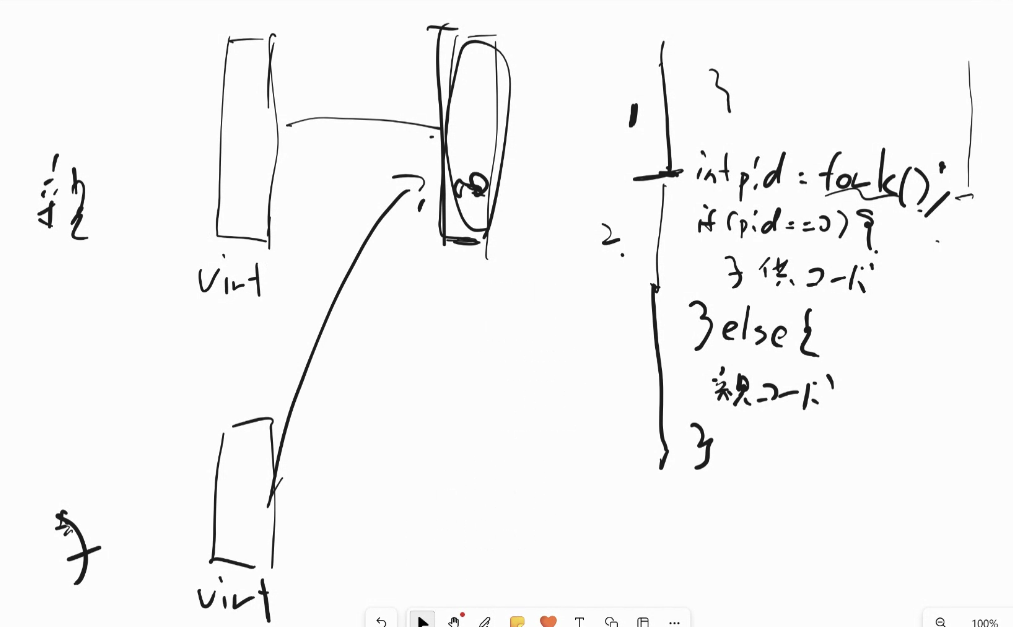 親
virt
子
virt
1
}
int pid = fork();
if (pid==0) {
子供コード
2.
} else {
親コード
}
T
100%